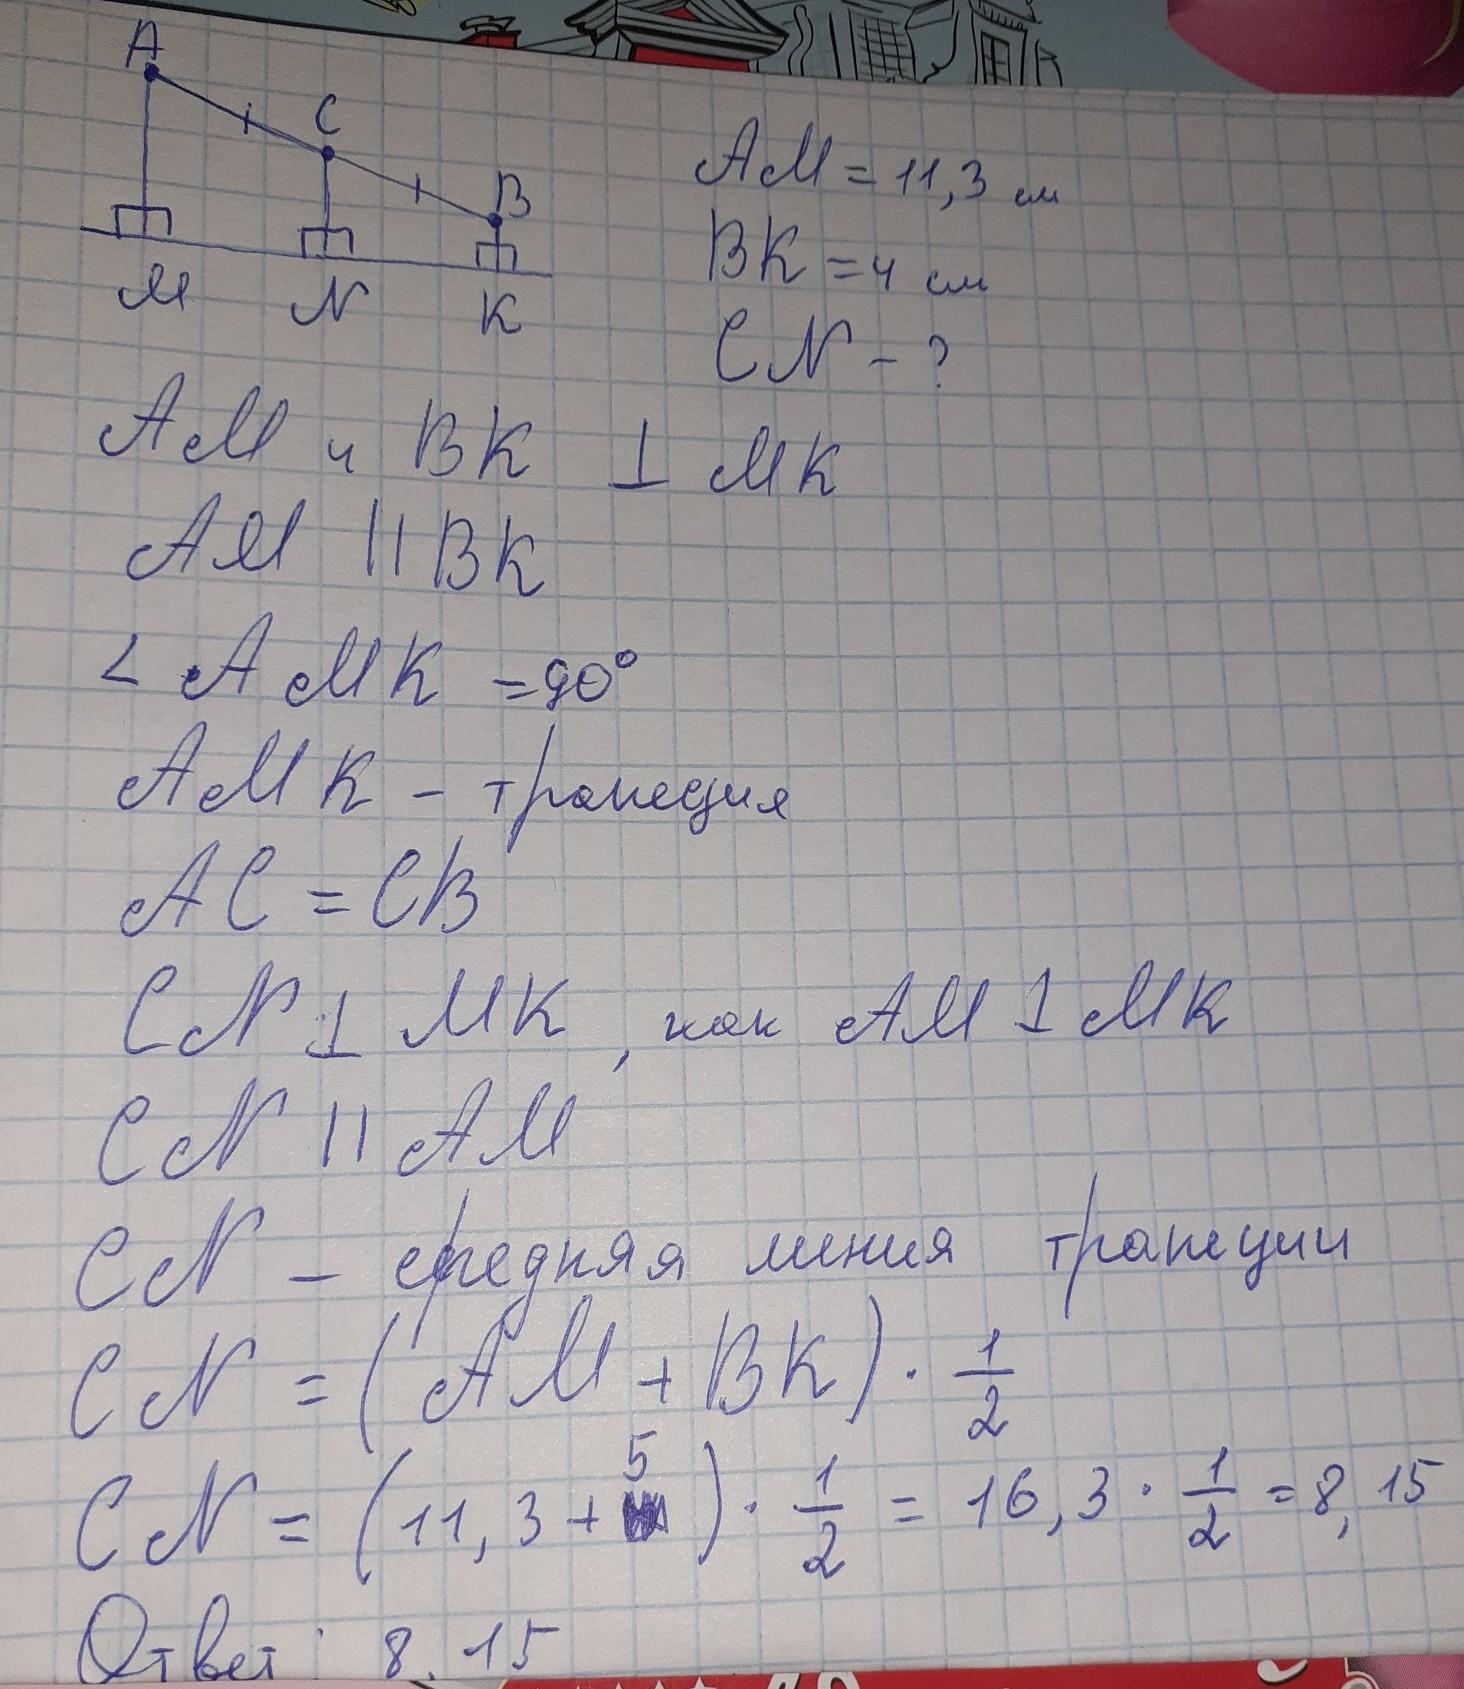 A
C
B
M
N
K
AM = 11,3 см
BK = 4 см
CN - ?
AM и BK ⊥ MK
AM || BK
< AMK = 90°
AMK - трапеция
AC = CB
CN ⊥ MK, как AM ⊥ MK
CN || AM
CN - средняя линия трапеции
CN = (AM + BK) · 1/2
CN = (11,3 + 5) · 1/2 = 16,3 · 1/2 = 8,15
Ответ: 8.15